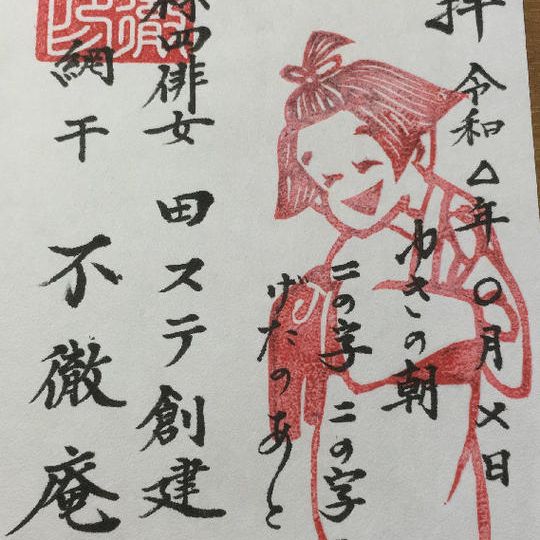 拝 令和△年〇月×日
ゆきの朝
二の字 二の字
げたのあと
禄四俳女 田ステ創建
網干 不徹庵